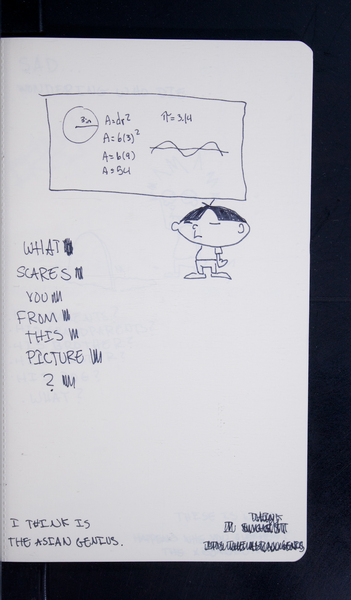 A=dr² π=3.14
A=6(3)²
A=6(9)
A=54
WHAT
SCARES
YOU
FROM
THIS
PICTURE
?
I THINK IS
THE ASIAN GENIUS.